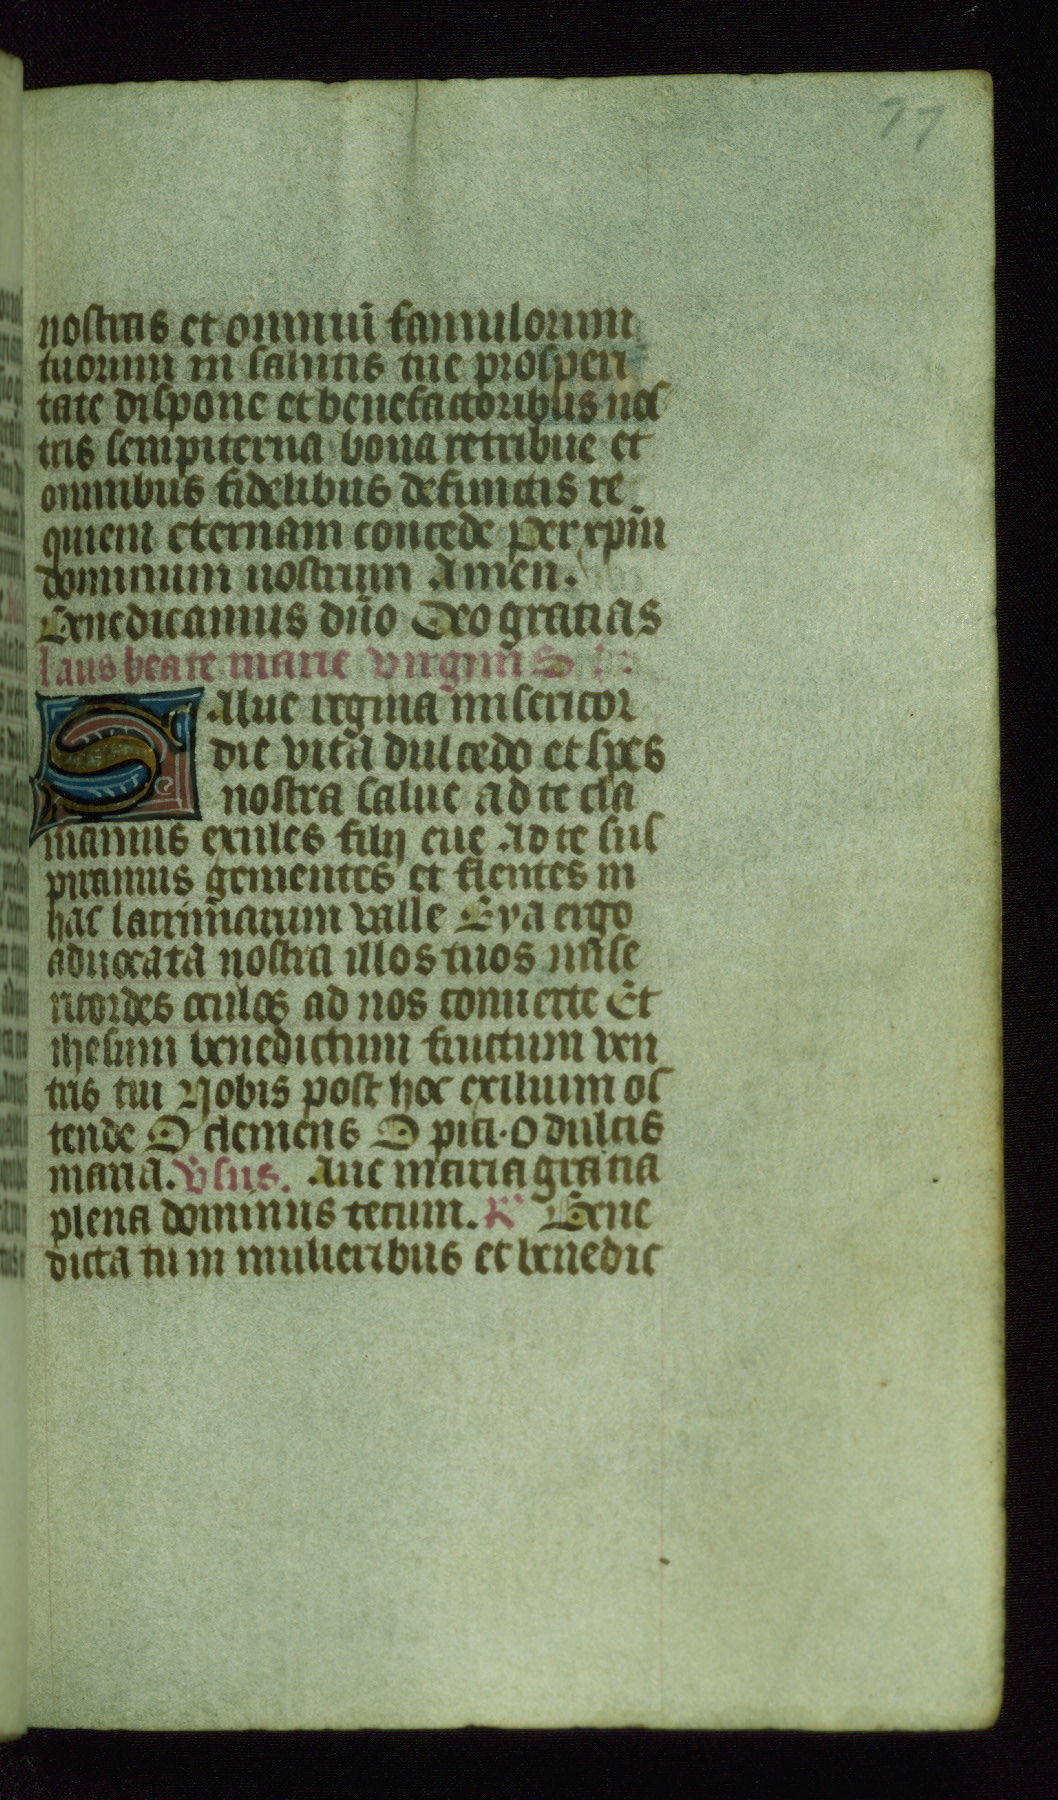 77
nostras et omniū famulorum
tuorum in salutis tue prosperi
tate dispone et benefactoribus nos
tris sempiterna bona retribue et
omnibus fidelibus defunctis re
quiem eternam concede Per xpm̄
dominum nostrum Amen.
Benedicamus dn̄o Deo gratias
laus beate marie virginis
Salue regina misericor
die vita dulcedo et spes
nostra salue ad te cla
mamus exules filij eue Ad te sus
piramus gementes et flentes in
hac lacrim̄arum valle Eya ergo
aduocata nostra illos tuos mise
ricordes oculos ad nos conuerte Et
ihesum benedictum fructum ven
tris tui Nobis post hoc exilium os
tende O clemens O pia. O dulcis
maria. v̾sus. Aue maria gratia
plena dominus tecum. R̾ Bene
dicta tu in mulieribus et benedic